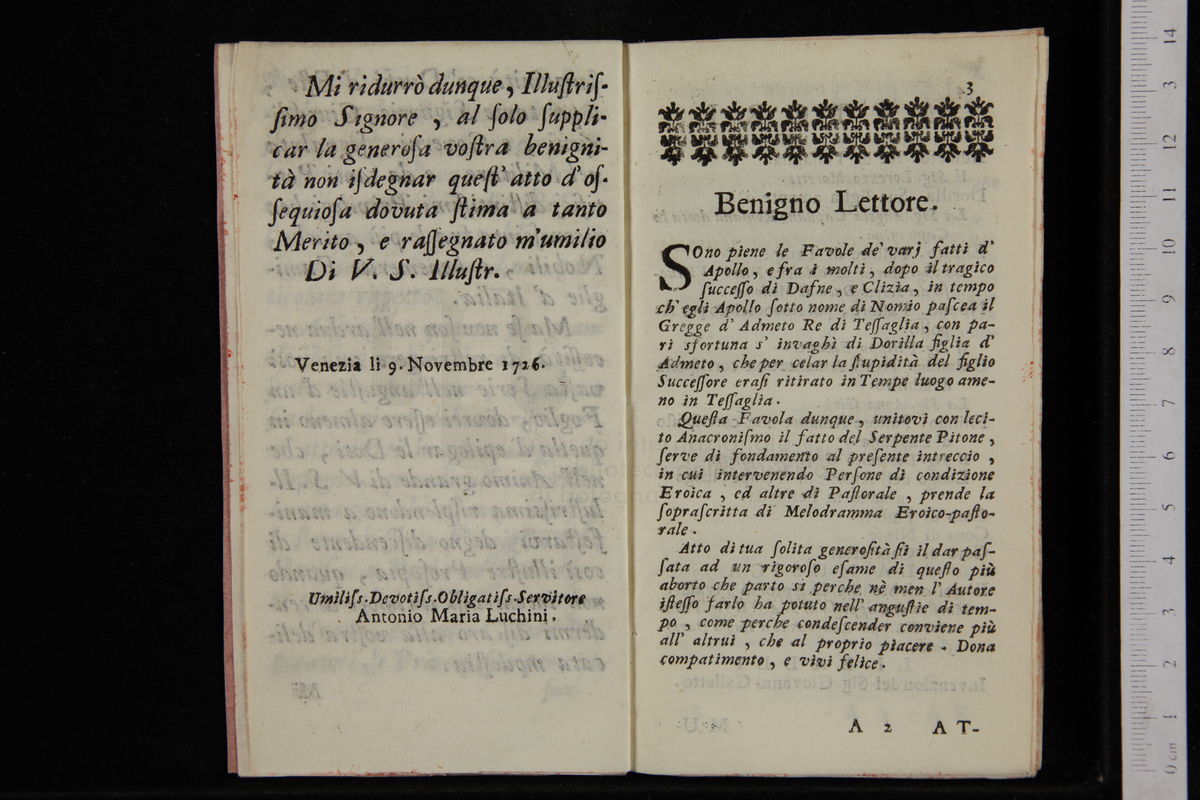 Mi ridurrò dunque, Illustris-
simo Signore, al solo suppli-
car la generosa vostra benigni-
tà non isdegnar quest' atto d'os-
sequiosa dovuta stima a tanto
Merito, e rassegnato m'umilio
Di V. S. Illustr.
Venezia li 9. Novembre 1726.
Umiliss. Devotiss. Obligatiss. Servitore
Antonio Maria Luchini.
3
Benigno Lettore.
SOno piene le Favole de' varj fatti d'
Apollo, e fra i molti, dopo il tragico
successo di Dafne, e Clizia, in tempo
ch' egli Apollo sotto nome di Nomio pascea il
Gregge d' Admeto Re di Tessaglia, con pa-
ri sfortuna s' invaghì di Dorilla figlia d'
Admeto, che per celar la stupidità del figlio
Successore erasi ritirato in Tempe luogo ame-
no in Tessaglia.
Questa Favola dunque, unitovi con leci-
to Anacronismo il fatto del Serpente Pitone,
serve di fondamento al presente intreccio,
in cui intervenendo Persone di condizione
Eroica, ed altre di Pastorale, prende la
soprascritta di Melodramma Eroico-pasto-
rale.
Atto di tua solita generosità sii il dar pas-
sata ad un rigoroso esame di questo più
aborto che parto sì perche nè men l' Autore
istesso farlo ha potuto nell' angustie di tem-
po, come perche condescender conviene più
all' altrui, che al proprio piacere. Dona
compatimento, e vivi felice.
A 2 AT-
14
13
12
11
10
9
8
7
6
5
4
3
2
1
0 cm